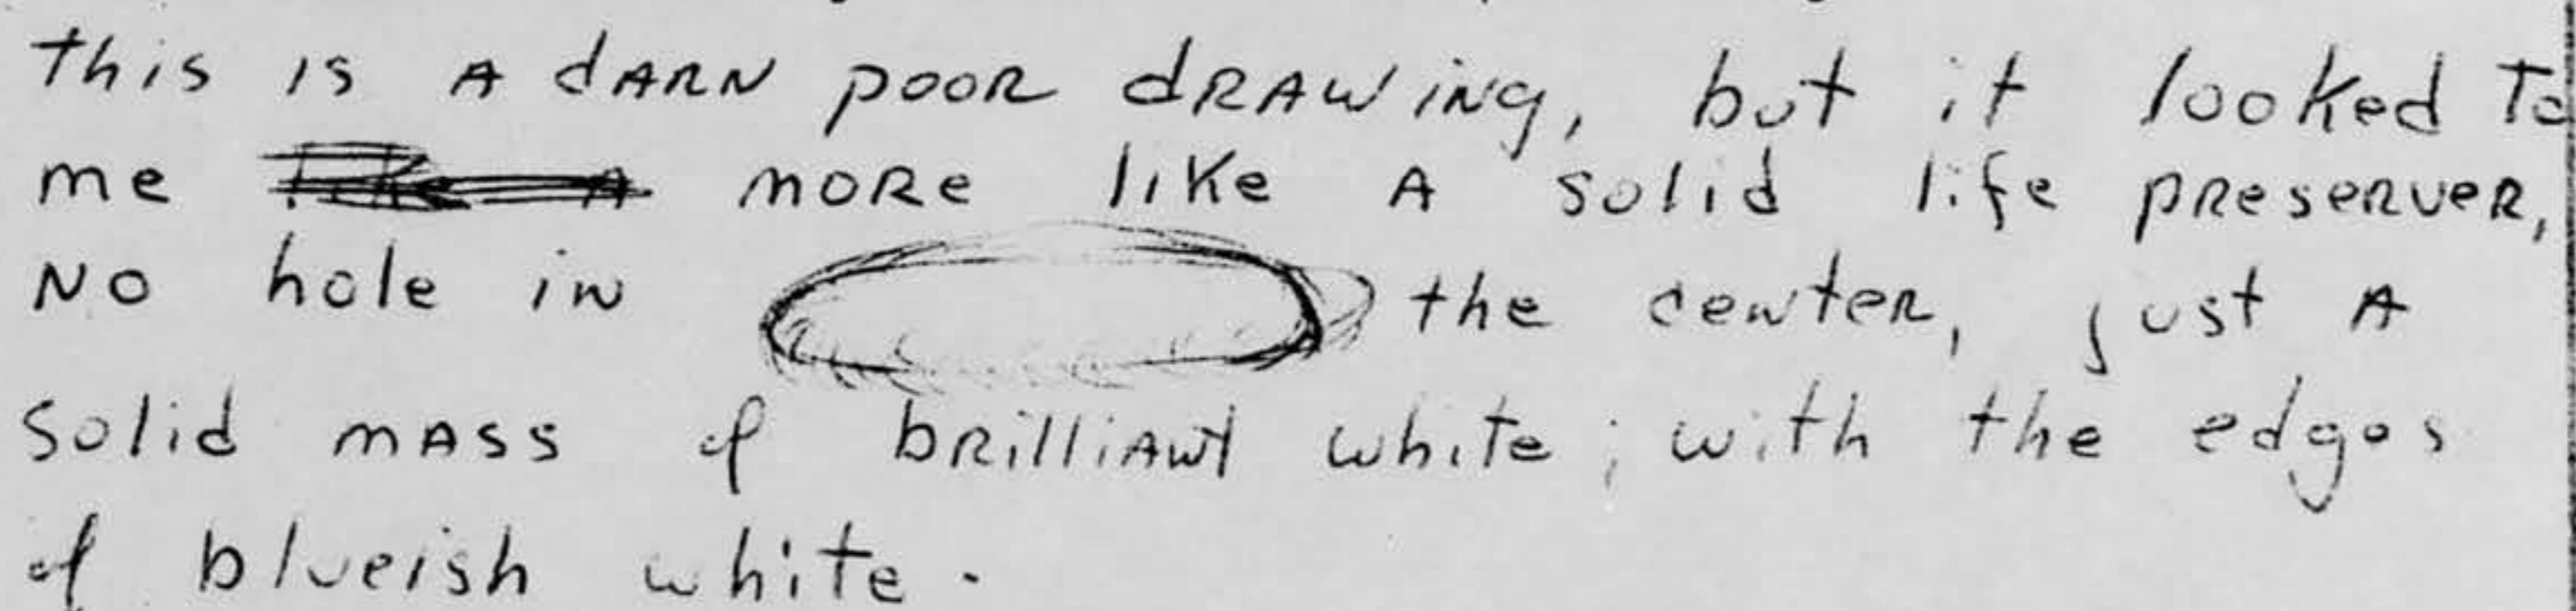 this is A dARN pooR dRAWiNg, but it looked To
me like A moRe like A solid life pReseRveR,
No hole iN the ceNteR, just A
solid mAss of bRilliANt white; with the edges
of blueish white.